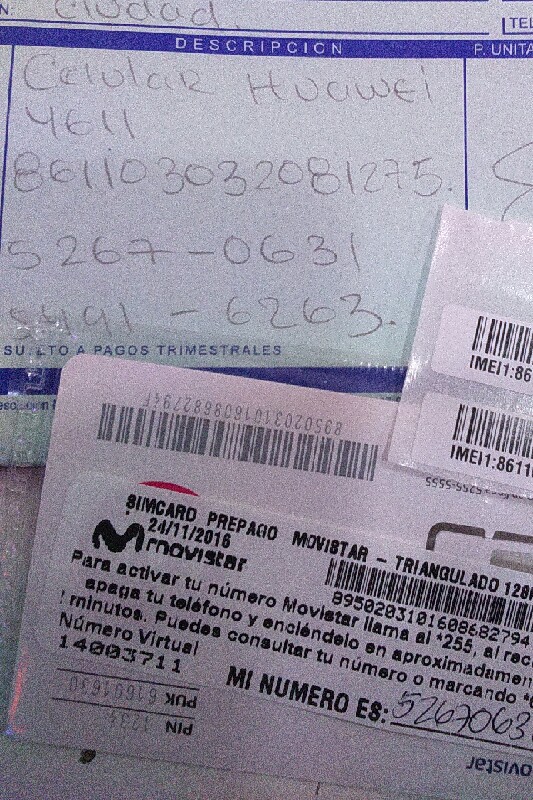 Ciudad.
TEL
DESCRIPCION
P. UNITA
Celular Huawei
4611
861103032081275.
5267-0631
5491 - 6263.
SUJETO A PAGOS TRIMESTRALES
IMEI1:86
IMEI1:8611
8950203101608682794F
SIMCARD PREPAGO MOVISTAR - TRIANGULADO 128
24/11/2016
movistar
8950203101608682794
Para activar tu número Movistar llama al *255, al rec
apaga tu teléfono y enciéndelo en aproximadamen
minutos. Puedes consultar tu número o marcando *
Número Virtual
14003711
MI NUMERO ES: 5267063
PUK 61691630
PIN 1234
movistar